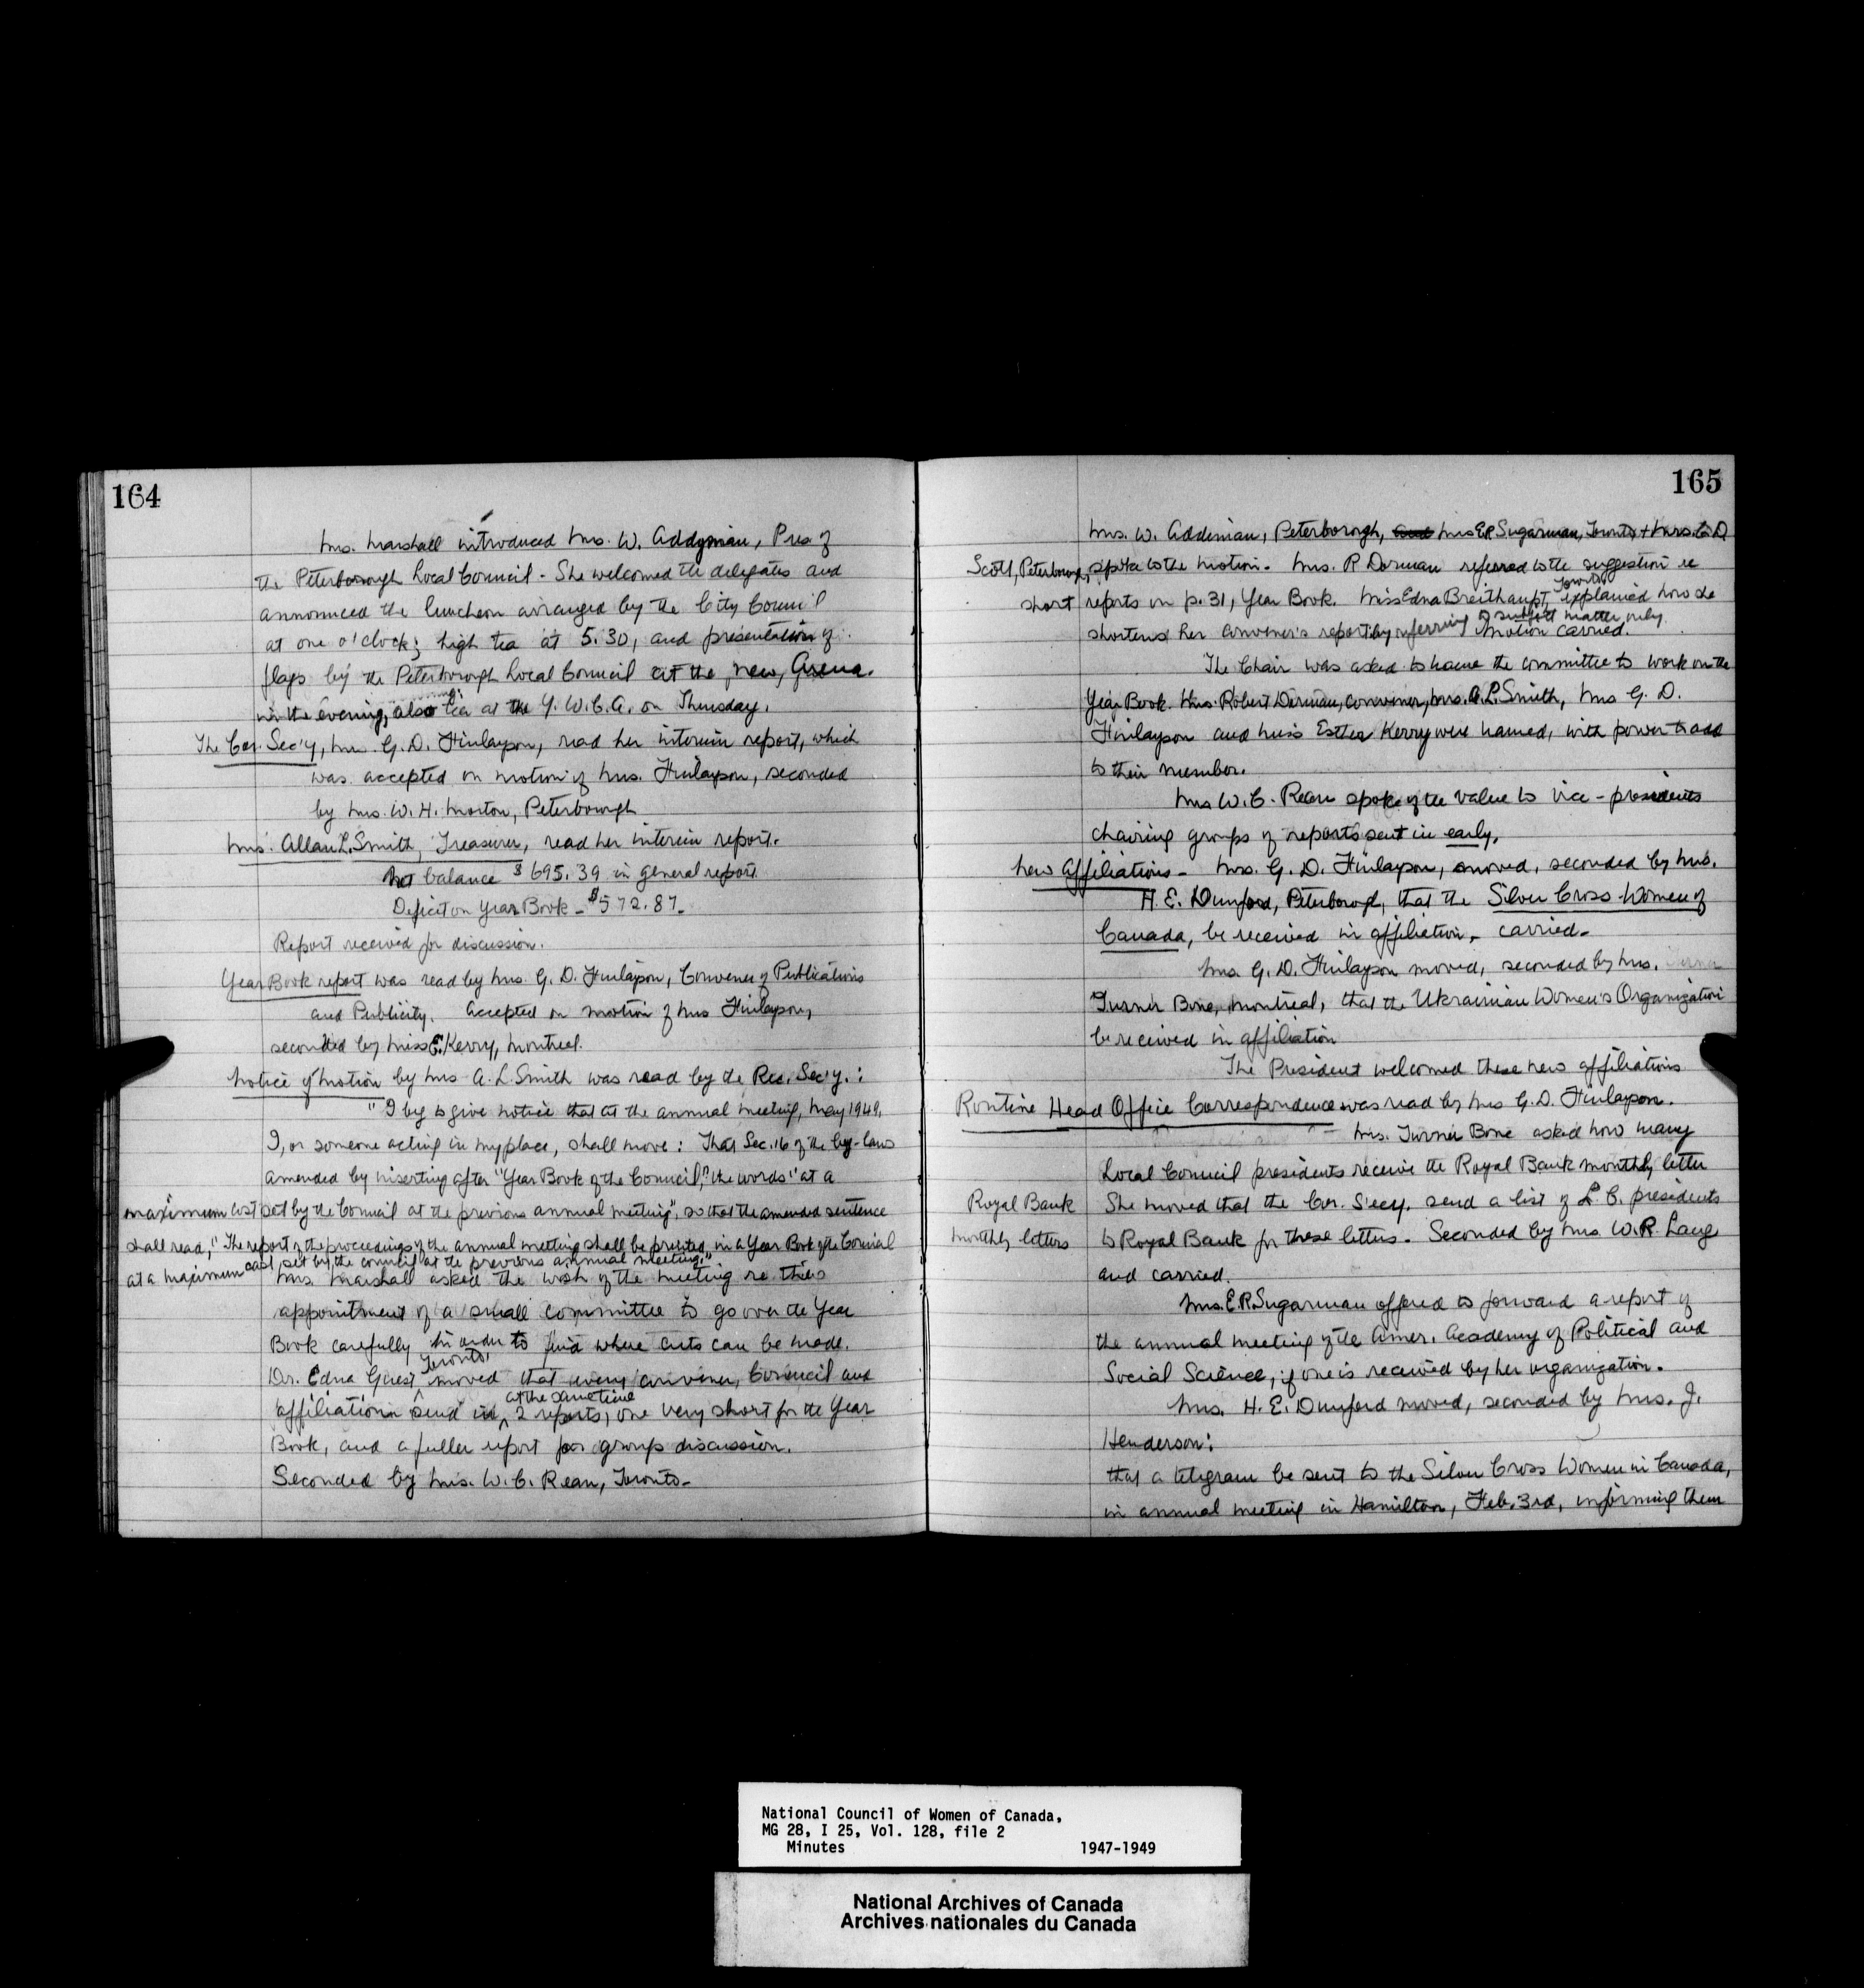 164
Mrs. Marshall introduced Mrs. W. Addyman, Pres of
the Peterborough Local Council. She welcomed the delegates and
announced the luncheon arranged by the City Council
at one o'clock; high tea at 5.30, and presentation of
flags by the Peterborough Local Council at the new, Arena.
in the evening, also tea at the Y.W.C.A. on Thursday.
The Cor. Sec'y, Mrs. G. D. Finlayson, read her interim report, which
was accepted on motion of Mrs. Finlayson, seconded
by Mrs. W. H. Morton, Peterborough
Mrs. Allan L. Smith, Treasurer, read her interim report.
Net balance $695.39 in general report.
Deficit on Year Book - $572.87.
Report received for discussion.
Year Book report was read by Mrs. G. D. Finlayson, Convener of Publications
and Publicity. Accepted on motion of Mrs Finlayson,
seconded by Miss E. Kerry, Montreal.
Notice of Motion by Mrs A. L. Smith was read by the Rec. Sec'y.:
"I beg to give notice that at the annual meeting, May 1949,
I, or someone acting in my place, shall move: That Sec. 16 of the by-laws
amended by inserting after "Year Book of the Council," the words "at a
maximum cost set by the Council at the previous annual meeting", so that the amended sentence
shall read, "The report of the proceedings of the annual meeting shall be printed in a Year Book of the Council
at a maximum cost set by the council at the previous annual meeting."
Mrs. Marshall asked the wish of the meeting re this
appointment of a small committee to go over the Year
Book carefully in order to find where cuts can be made.
Dr. Edna Guest Toronto moved that every convener, Council and
affiliation send in at the same time 2 reports, one very short for the Year
Book, and a fuller report for group discussion.
Seconded by Mrs. W. C. Rean, Toronto.
165
Mrs. W. Addiman, Peterborough, and Mrs E.R. Sugarman, Toronto + Mrs. C. D.
Scott, Peterborough, spoke to the motion. Mrs. R Dorman referred to the suggestion re
short reports on p. 31, Year Book. Miss Edna Breithaupt, Toronto explained how she
shortens her convener's report by referring to subject matter only.
Motion carried.
The Chair was asked to name the committee to work on the
Year Book. Mrs. Robert Dorman, convener, Mrs. A. L. Smith, Mrs G. D.
Finlayson and Miss Esther Kerry were named, with power to add
to their number.
Mrs W. C. Rean spoke of the value to vice-presidents
chairing groups of reports sent in early.
New Affiliations - Mrs. G. D. Finlayson, moved, seconded by Mrs.
H. E. Dunford, Peterborough, that the Silver Cross Women of
Canada, be received in affiliation, - carried.
Mrs. G. D. Finlayson moved, seconded by Mrs.
Turner Bone, Montreal, that the Ukrainian Women's Organization
be received in affiliation
The President welcomed these new affiliations
Routine Head Office Correspondence was read by Mrs G. D. Finlayson.
Mrs. Turner Bone asked how many
Local Council presidents receive the Royal Bank monthly letter
Royal Bank She moved that the Cor. Secy. send a list of L. C. presidents
monthly letters to Royal Bank for these letters. Seconded by Mrs W. R. Lang
and carried.
Mrs. E. R. Sugarman offered to forward a report of
the annual meeting of the Amer. Academy of Political and
Social Science, if one is received by her organization.
Mrs. H. E. Dunford moved, seconded by Mrs. J.
Henderson:
that a telegram be sent to the Silver Cross Women in Canada,
in annual meeting in Hamilton, Feb. 3rd, informing them
National Council of Women of Canada,
MG 28, I 25, Vol. 128, file 2
Minutes 1947-1949
National Archives of Canada
Archives nationales du Canada